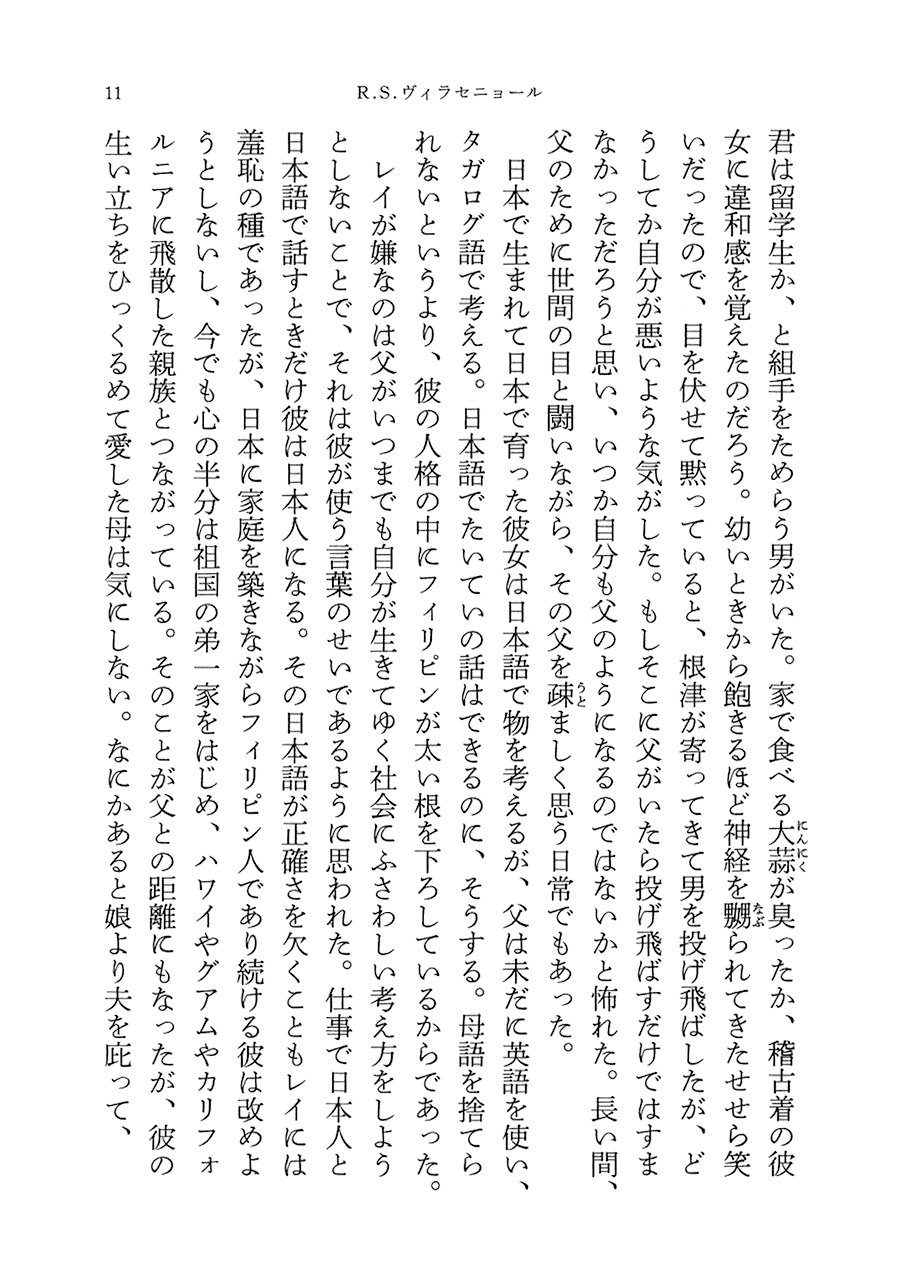 11
R.S.ヴィラセニョール
君は留学生か、と組手をためらう男がいた。家で食べる大蒜が臭ったか、稽古着の彼
にんにく
女に違和感を覚えたのだろう。幼いときから飽きるほど神経を嬲られてきたせせら笑
なぶ
いだったので、目を伏せて黙っていると、根津が寄ってきて男を投げ飛ばしたが、ど
うしてか自分が悪いような気がした。もしそこに父がいたら投げ飛ばすだけではすま
なかっただろうと思い、いつか自分も父のようになるのではないかと怖れた。長い間、
父のために世間の目と闘いながら、その父を疎ましく思う日常でもあった。
うと
日本で生まれて日本で育った彼女は日本語で物を考えるが、父は未だに英語を使い、
タガログ語で考える。日本語でたいていの話はできるのに、そうする。母語を捨てら
れないというより、彼の人格の中にフィリピンが太い根を下ろしているからであった。
レイが嫌なのは父がいつまでも自分が生きてゆく社会にふさわしい考え方をしよう
としないことで、それは彼が使う言葉のせいであるように思われた。仕事で日本人と
日本語で話すときだけ彼は日本人になる。その日本語が正確さを欠くこともレイには
羞恥の種であったが、日本に家庭を築きながらフィリピン人であり続ける彼は改めよ
うとしないし、今でも心の半分は祖国の弟一家をはじめ、ハワイやグアムやカリフォ
ルニアに飛散した親族とつながっている。そのことが父との距離にもなったが、彼の
生い立ちをひっくるめて愛した母は気にしない。なにかあると娘より夫を庇って、